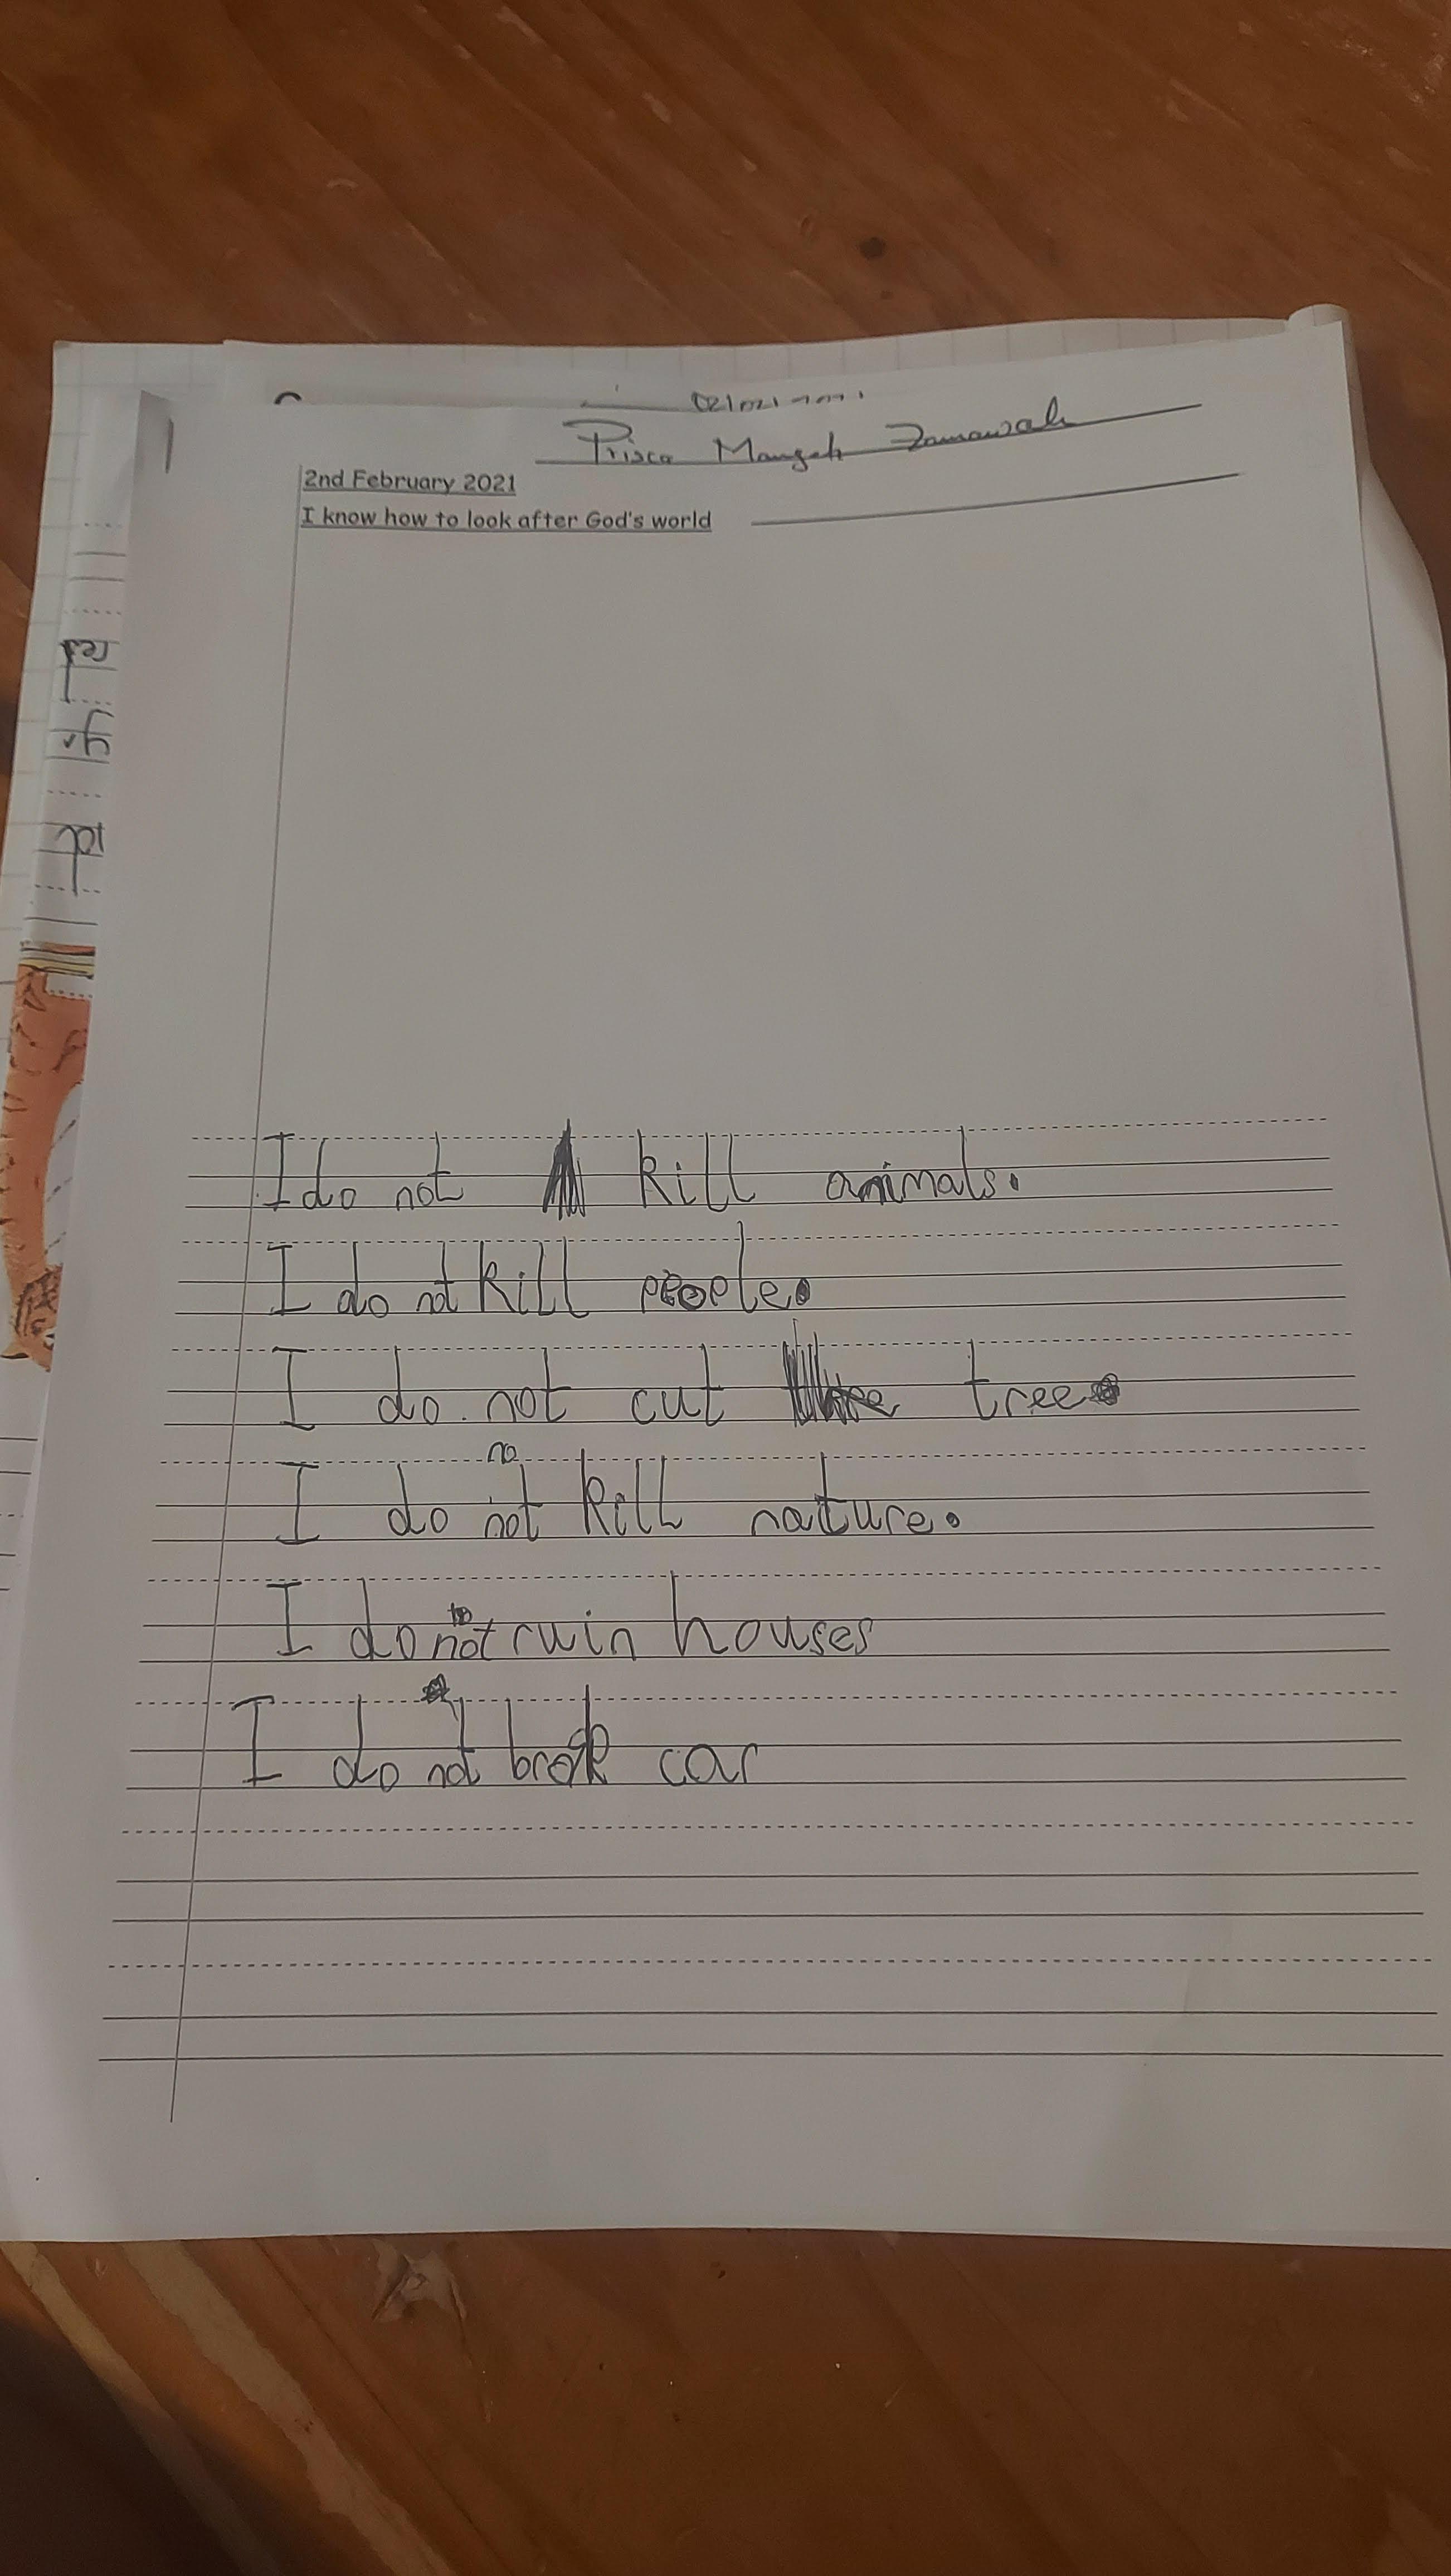 Prisca Mangeh
2nd February 2021
I know how to look after God's world
I do not kill animals.
I do not kill people.
I do not cut the tree.
no
I do not kill nature.
I do not ruin houses
I do not brok car